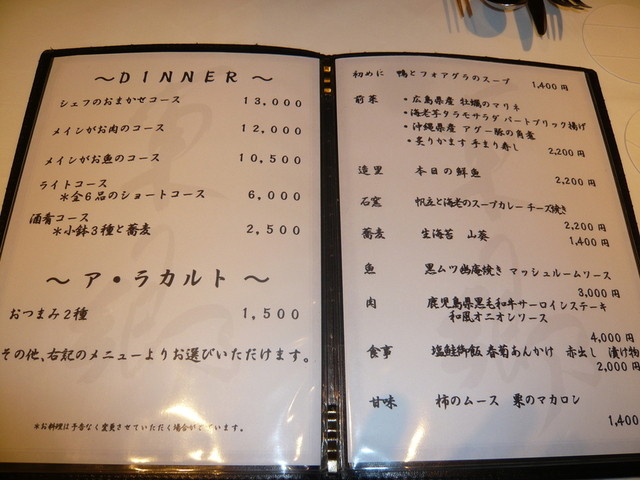 ～DINNER～
シェフのおまかせコース 13,000
メインがお肉のコース 12,000
メインがお魚のコース 10,500
ライトコース
＊全6品のショートコース 6,000
酒肴コース
＊小鉢3種と蕎麦 2,500
～ア・ラカルト～
おつまみ2種 1,500
その他、右記のメニューよりお選びいただけます。
＊お料理は予告なく変更させていただく場合がございます。
初めに 鴨とフォアグラのスープ 1,400円
前菜 ・広島県産 牡蠣のマリネ
・海老芋タラモサラダ パートブリック揚げ
・沖縄県産 アグー豚の角煮
・炙りかます 手まり寿し
2,200円
造里 本日の鮮魚
2,200円
石窯 帆立と海老のスープカレー チーズ焼き
2,200円
蕎麦 生海苔 山葵 1,400円
魚 黒ムツ幽庵焼き マッシュルームソース
3,000円
肉 鹿児島県黒毛和牛サーロインステーキ
和風オニオンソース
4,000円
食事 塩鮭御飯 春菊あんかけ 赤出し 漬け物
2,000円
甘味 柿のムース 栗のマカロン
1,400